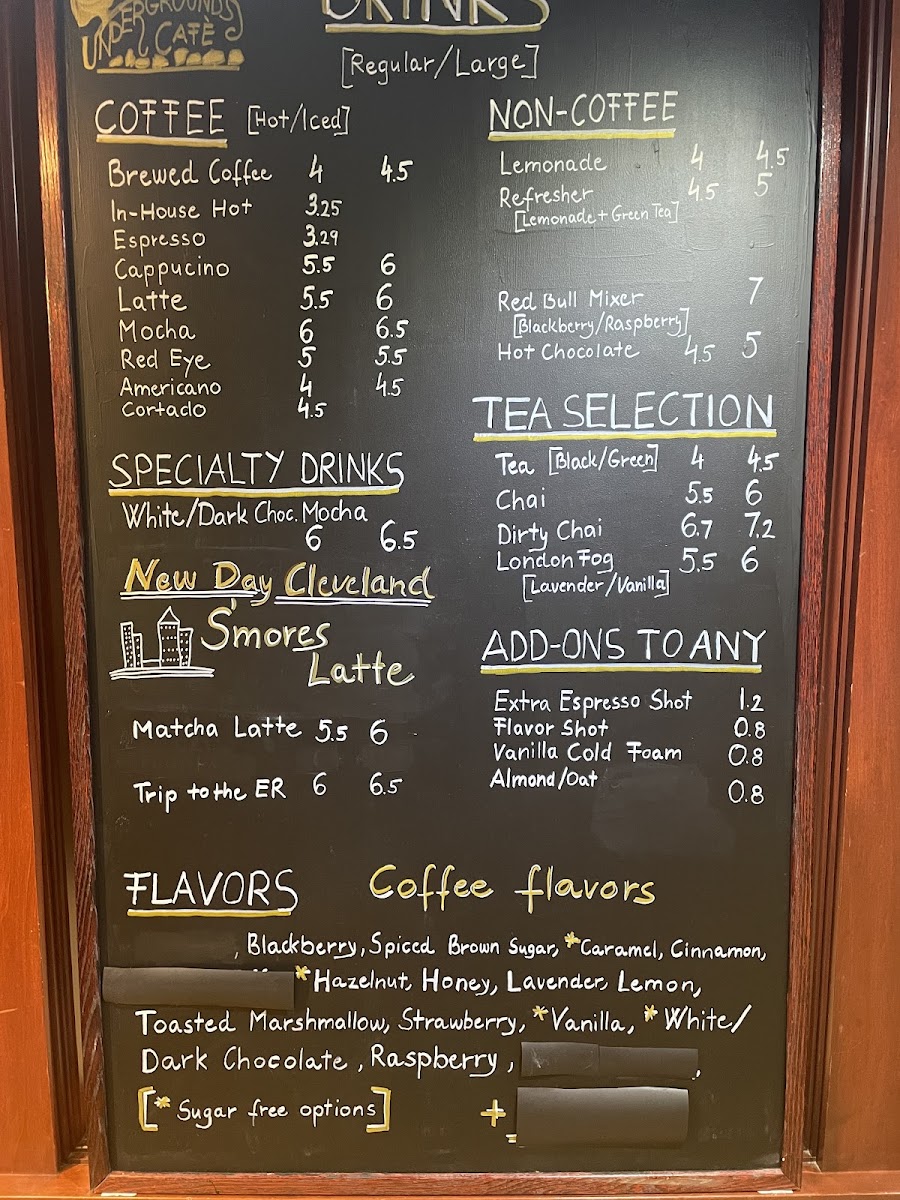 UNDERGROUNDS
CAFÈ
DRINKS
[Regular/Large]
COFFEE [Hot/Iced]
Brewed Coffee 4 4.5
In-House Hot 3.25
Espresso 3.29
Cappucino 5.5 6
Latte 5.5 6
Mocha 6 6.5
Red Eye 5 5.5
Americano 4 4.5
Cortado 4.5
SPECIALTY DRINKS
White/Dark Choc. Mocha
6 6.5
New Day Cleveland
S'mores
Latte
Matcha Latte 5.5 6
Trip to the ER 6 6.5
NON-COFFEE
Lemonade 4 4.5
Refresher 4.5 5
[Lemonade + Green Tea]
Red Bull Mixer 7
[Blackberry/Raspberry]
Hot Chocolate 4.5 5
TEA SELECTION
Tea [Black/Green] 4 4.5
Chai 5.5 6
Dirty Chai 6.7 7.2
London Fog 5.5 6
[Lavender/Vanilla]
ADD-ONS TO ANY
Extra Espresso Shot 1.2
Flavor Shot 0.8
Vanilla Cold Foam 0.8
Almond/Oat 0.8
FLAVORS Coffee flavors
, Blackberry, Spiced Brown Sugar, *Caramel, Cinnamon,
*Hazelnut, Honey, Lavender, Lemon,
Toasted Marshmallow, Strawberry, *Vanilla, *White/
Dark Chocolate, Raspberry, ,
[* Sugar free options] +